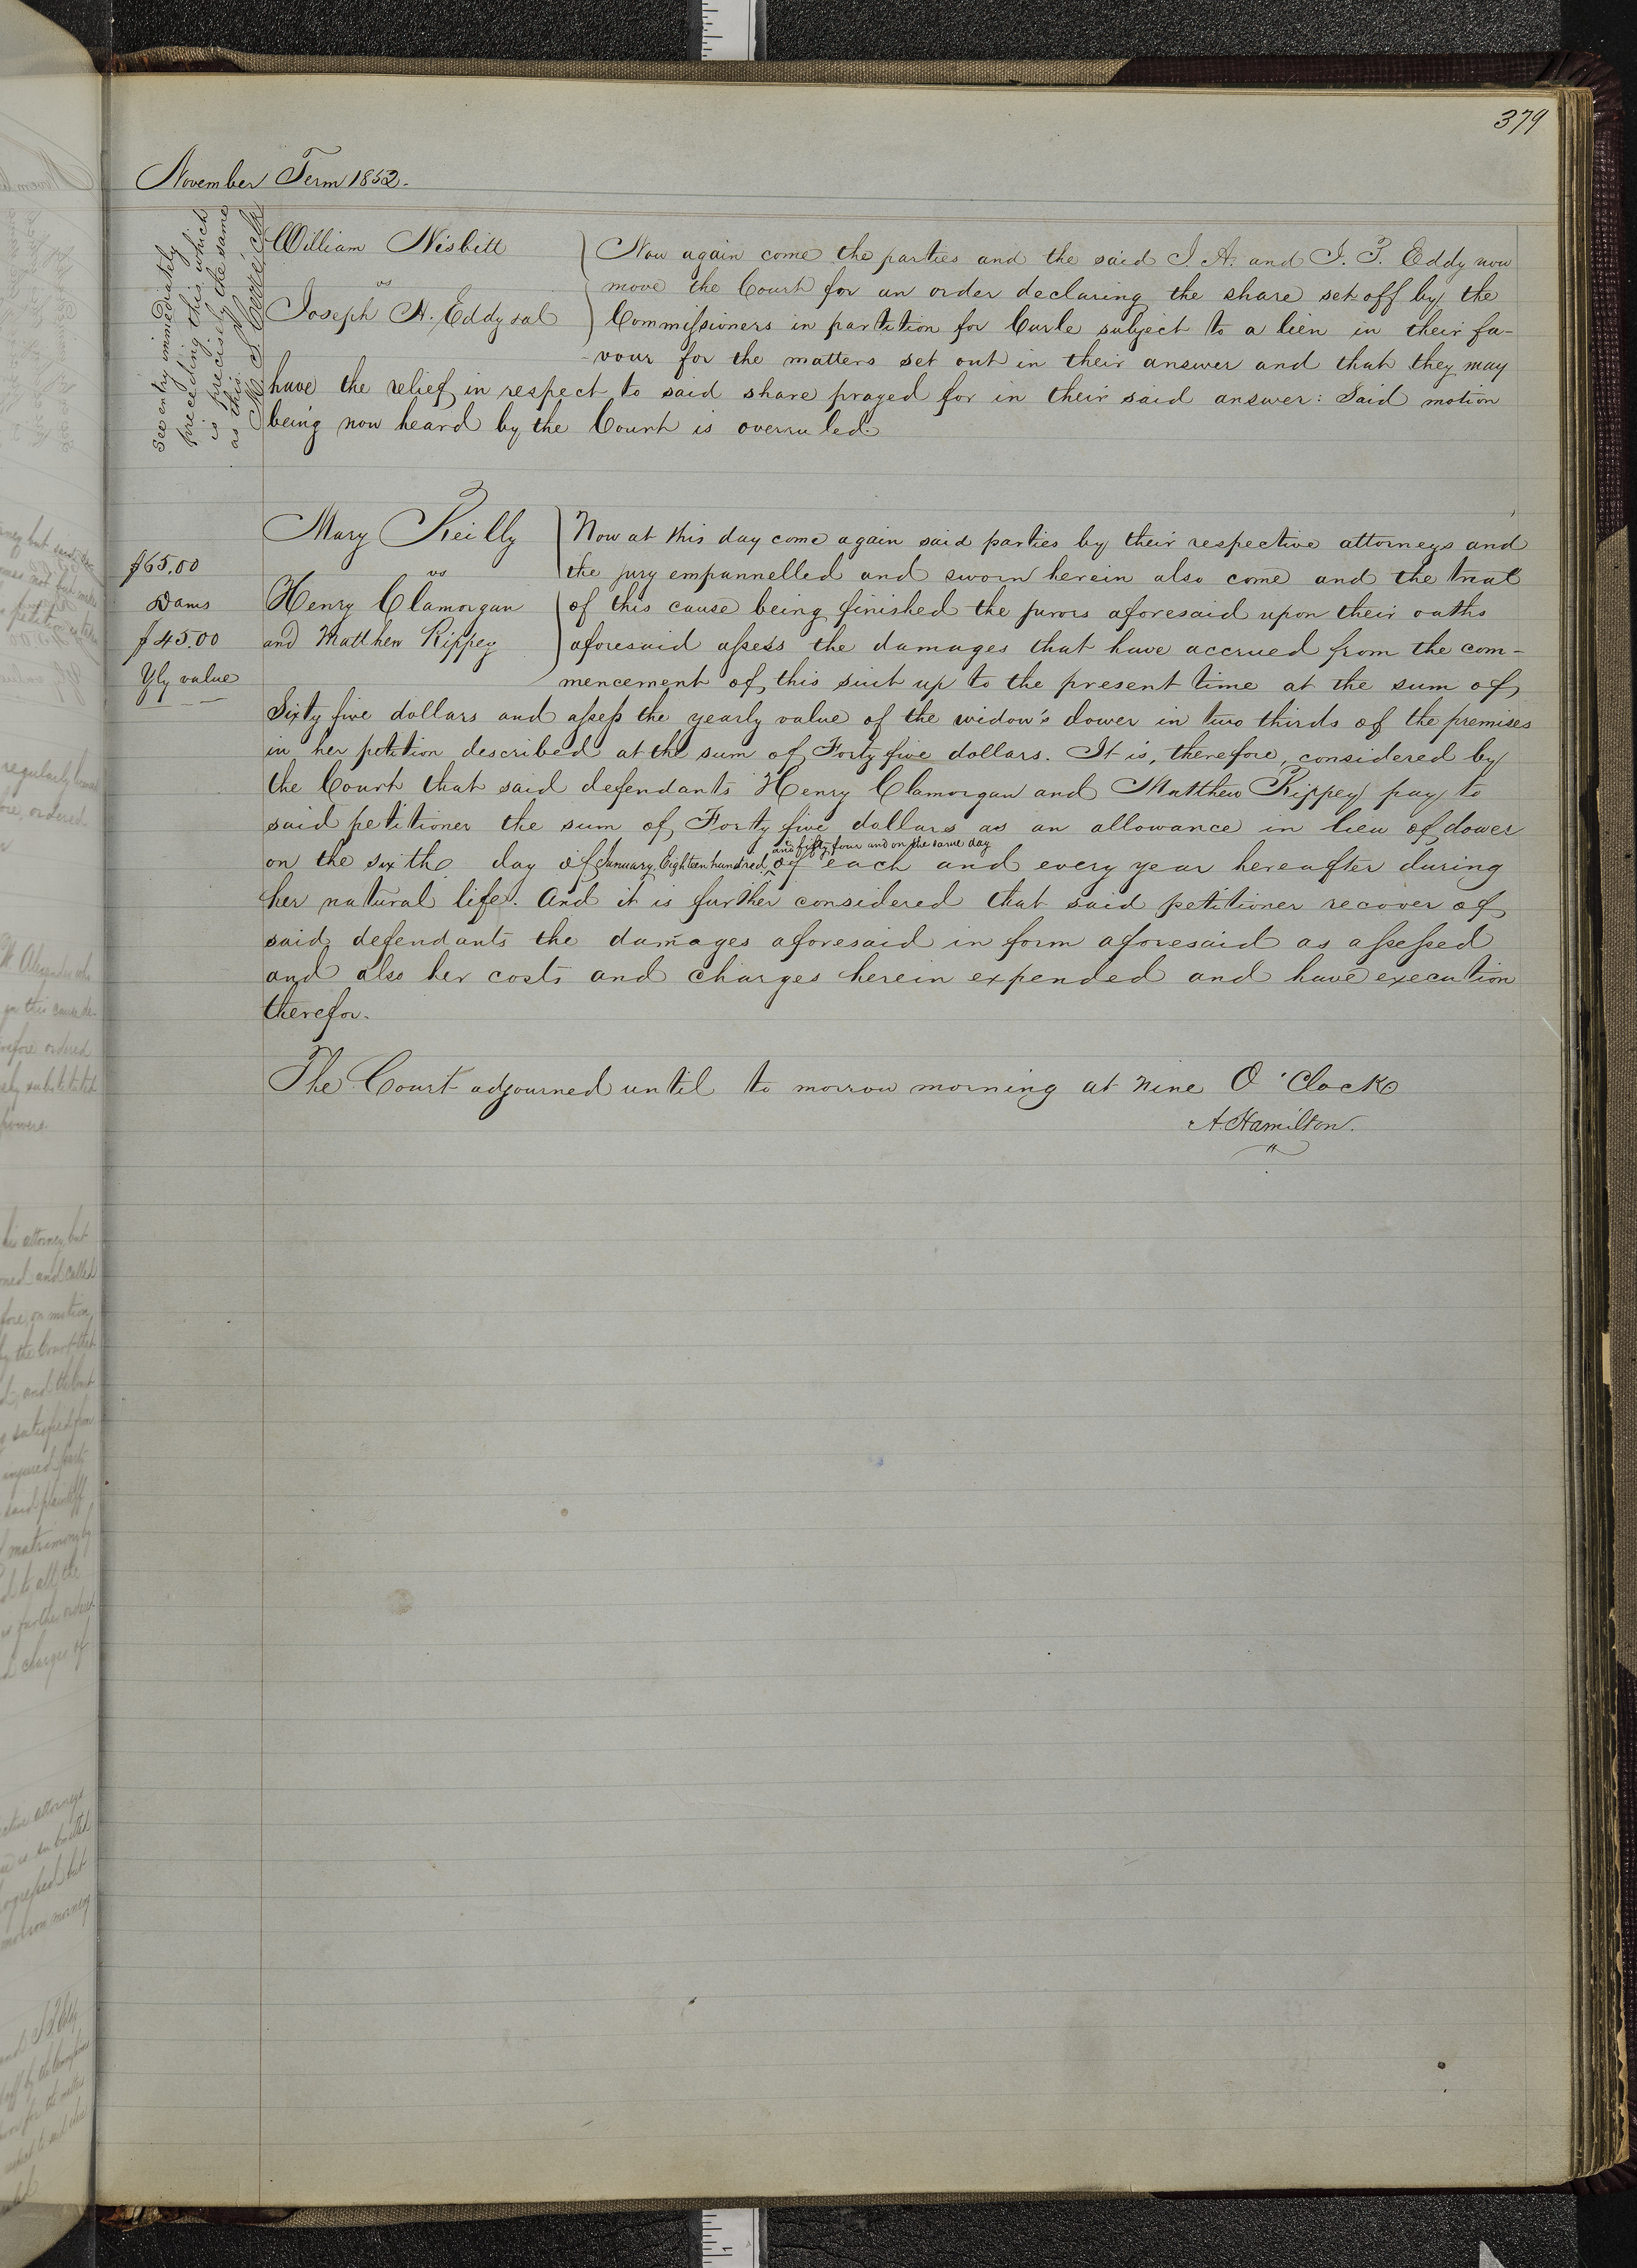 379
November Term 1852.
See entry immediately
preceding this, which
is precisely the same
as this.
William Nisbitt
vs
Joseph A. Eddy &al
Now again come the parties and the said J. A. and J. F. Eddy now
move the Court for an order declaring the share set off by the
Commissioners in partition for Curle subject to a lien in their fa-
vour for the matters set out in their answer and that they may
have the relief in respect to said share prayed for in their said answer: Said motion
being now heard by the Court is overruled.
$65.00
Dams
$45.00
Yly value
Mary Reilly
vs
Henry Clamorgan
and Matthew Rippey
Now at this day come again said parties by their respective attorneys and
the jury empannelled and sworn herein also come and the trial
of this cause being finished the jurors aforesaid upon their oaths
aforesaid assess the damages that have accrued from the com-
mencement of this suit up to the present time at the sum of
Sixty five dollars and assess the yearly value of the widow's dower in two thirds of the premises
in her petition described at the sum of Forty five dollars. It is, therefore, considered by
the Court that said defendants Henry Clamorgan and Matthew Rippey pay to
said petitioner the sum of Forty five dollars as an allowance in lieu of dower
and fifty four and on the same day
on the sixth day of January Eighteen hundred, of each and every year hereafter during
her natural life. And it is further considered that said petitioner recover of
said defendants the damages aforesaid in form aforesaid as assessed
and also her costs and charges herein expended and have execution
therefor.
The Court adjourned until to morrow morning at nine O'Clock
A. Hamilton.